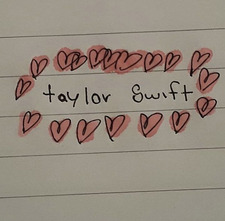 taylor Swift